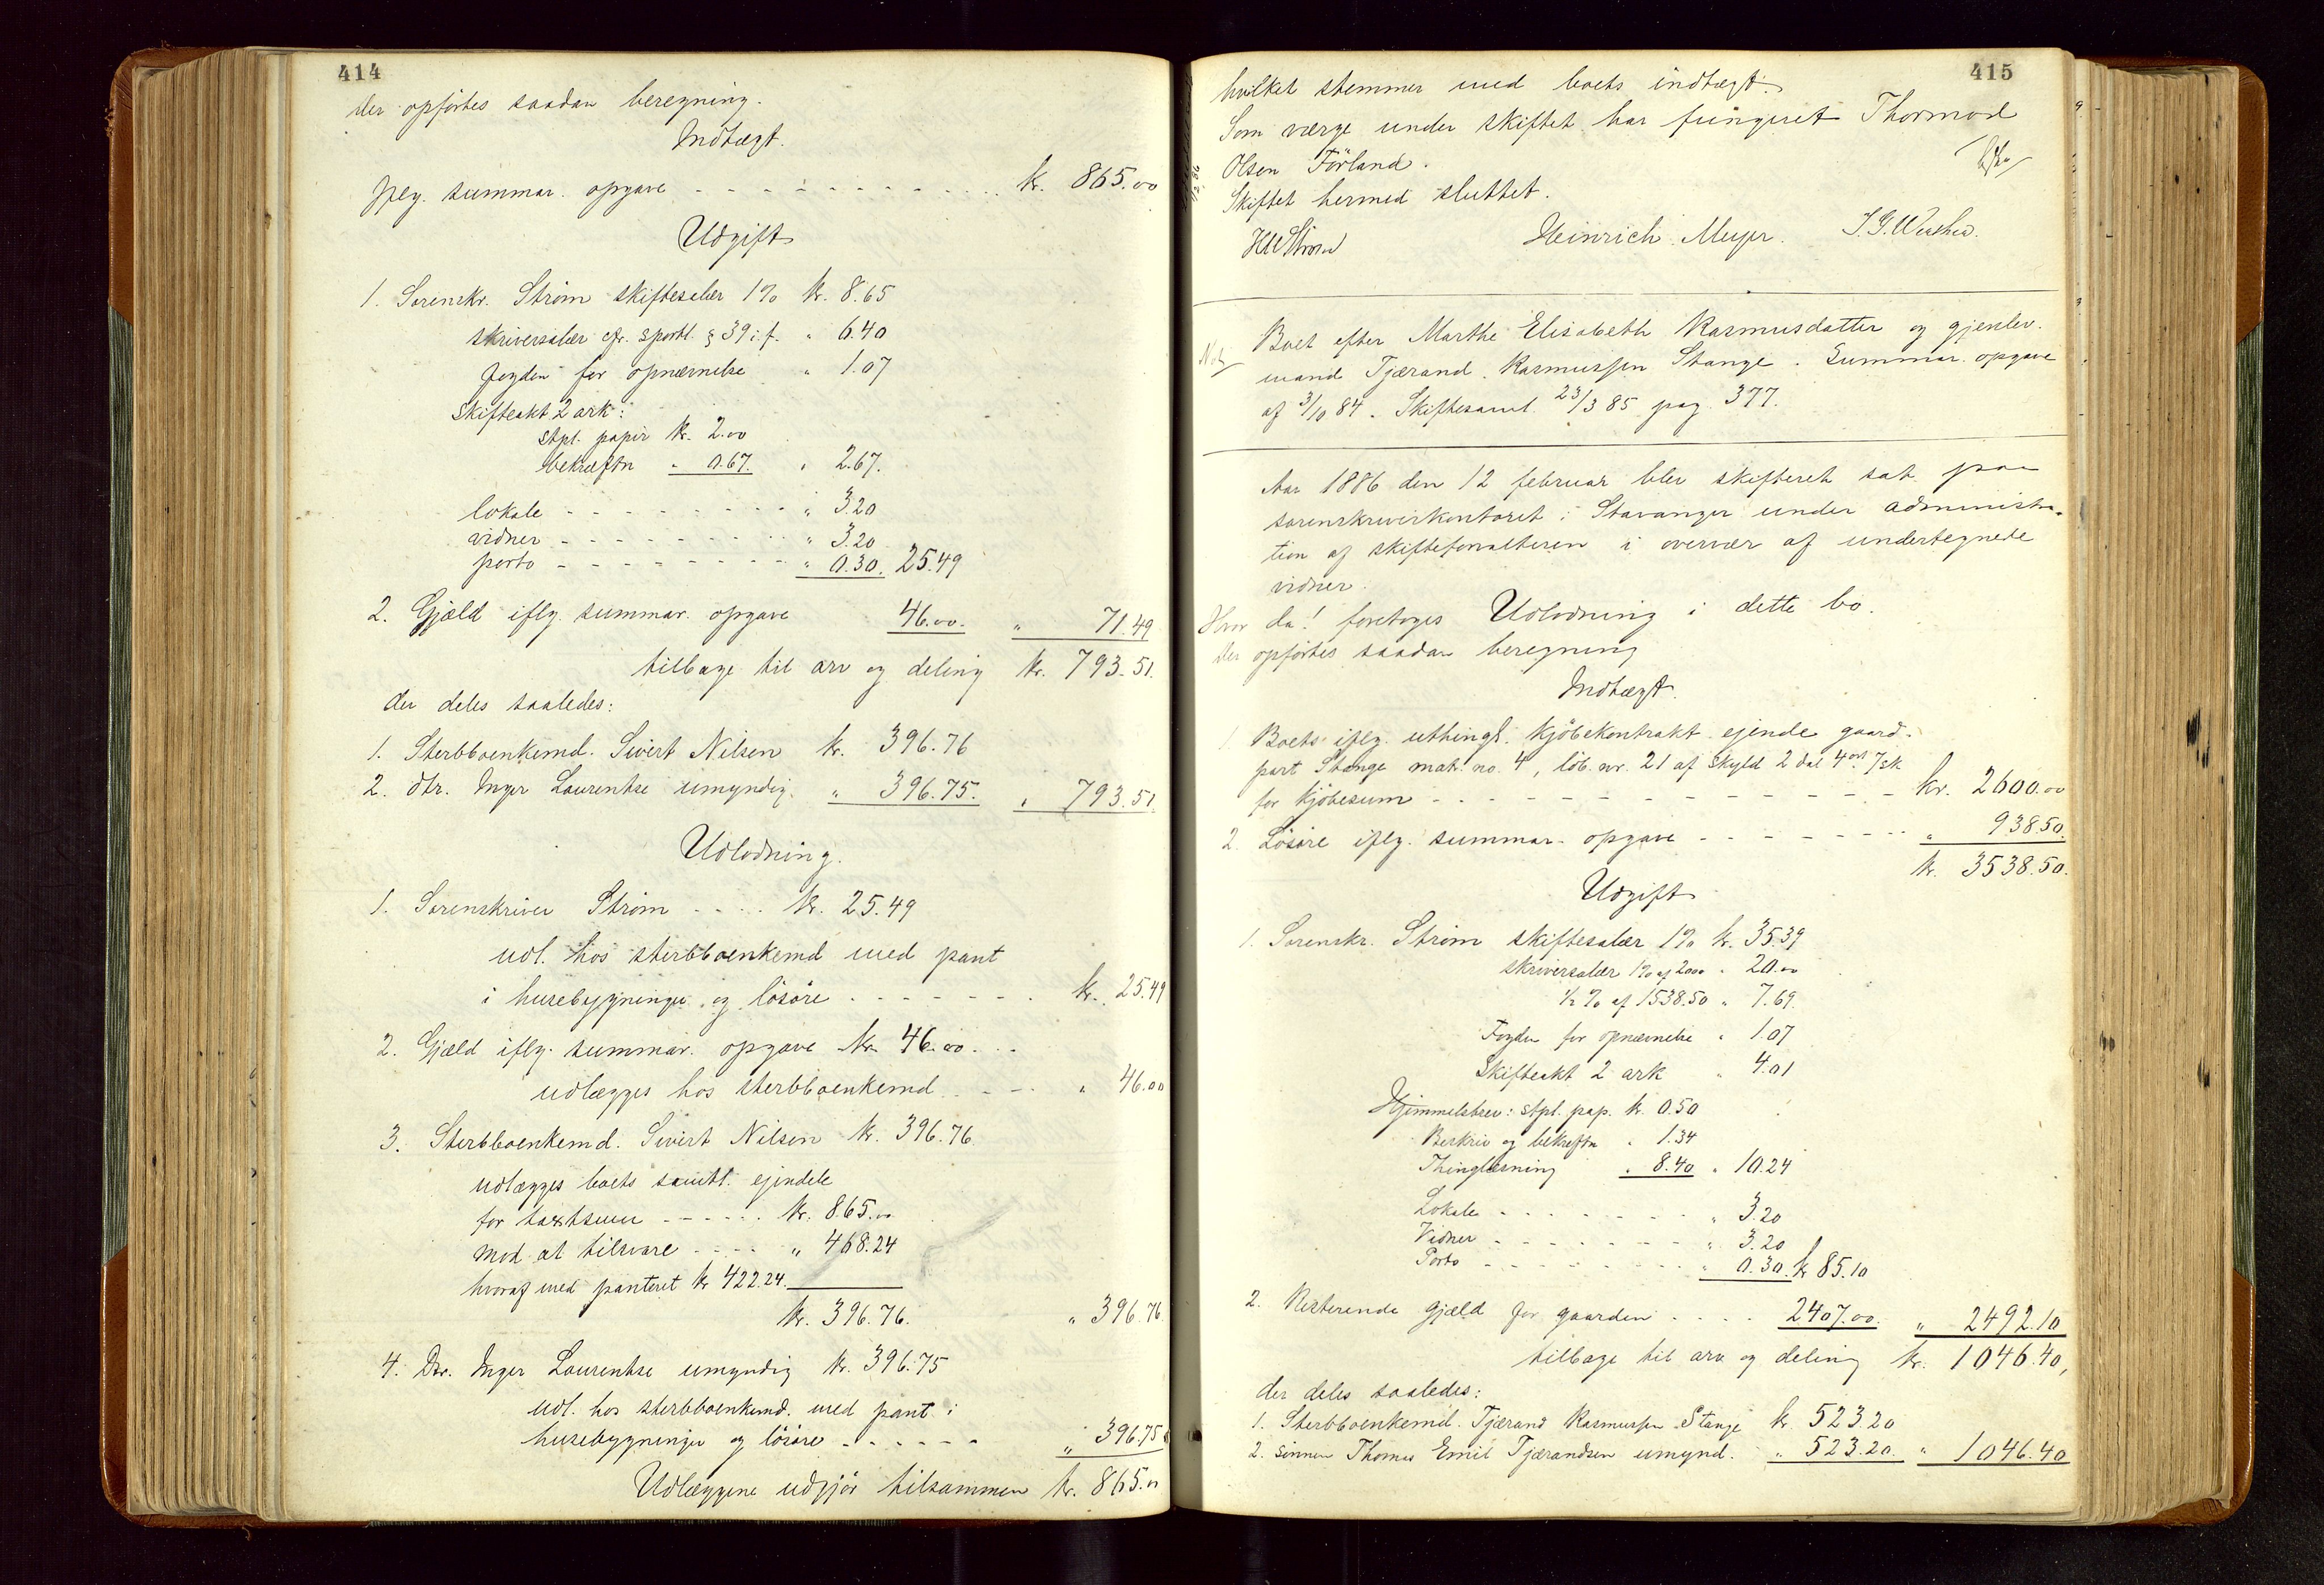 414
der opførtes saadan beregning.
Indtægt.
Iflg. summar. opgave - - - - - - - - - - kr. 865.00
Udgift
1. Sorenskr. Strøm skiftesalær 1% kr. 8.65
skriversalær cfr. sportl. § 39 i.f. " 6.40
fogden for opnævnelse " 1.07
skifteakt 2 ark:
stpl. papir kr. 2.00
bekræftn " 0.67. " 2.67.
lokale - - - - - - - - " 3.20
vidner - - - - - - - - " 3.20
porto - - - - - - - - " 0.30. 25.49
2. Gjæld iflg. summar. opgave 46.00. " 71.49
tilbage til arv og deling kr. 793.51.
der deles saaledes:
1. Sterbboenkemd. Sivert Nilsen kr. 396.76
2. dtr. Inger Laurentse umyndig. " 396.75. " 793.51.
Udlodning.
1. Sorenskriver Strøm - - - - kr. 25.49
udl. hos sterbboenkemd med pant
i husebygninger og løsøre - - - - - - - kr. 25.49
2. Gjæld iflg. summar. opgave kr. 46.00 - - -
udlægges hos sterbboenkemd. - - - " 46.00
3. Sterbboenkemd. Sivert Nilsen kr. 396.76.
udlægges boets samtl. ejendele
for taxtsum - - - - - kr. 865.00
mod at tilsvare - - - - " 468.24
hvoraf med panteret kr 422.24.
kr. 396.76. " 396.76.
4. Dtr. Inger Laurentse umyndig kr. 396.75
udl. hos sterbboenkemd. med pant i
husebygninger og løsøre - - - - - - " 396.75
Udlæggene udgjør tilsammen kr. 865.00
415
hvilket stemmer med boets indtægt.
Som værge under skiftet har fungeret Thormod
Olsen Førland.
Skiftet hermed sluttet.
Strøm Heinrich Meyer.
Not.
Boet efter Marthe Elisabeth Rasmusdatter og gjenlev.
mand Tjærand Rasmussen Stange. Summar. opgave
af 3/10 84. Skiftesaml. 23/3 85 pag. 377.
Aar 1886 den 12 februar blev skifteret sat paa
sorenskriverkontoret i Stavanger under administra-
tion af skifteforvalteren i overvær af undertegnede
vidner.
Hvor da! foretoges Udlodning i dette bo.
der opførtes saadan beregning
Indtægt.
1 Boets iflg. uthingl. kjøbekontrakt ejende gaard-
part Stange matr. no. 4, løb. nr. 21 af skyld 2 dal 4 ort 7 sk
for kjøbesum - - - - - - - - - - - - - kr. 2600.00
2. Løsøre iflg. summar. opgave - - - - - - - " 938.50.
kr. 3538.50.
Udgift
1. Sorenskr. Strøm skiftesalær 1% kr. 35.39
skriversalær 1% af 2000 " 20.00
1/2 % af 1538.50 " 7.69.
Fogden for opnævnelse " 1.07
Skifteakt 2 ark " 4.01
Hjemmelsbrev: stpl. pap. kr. 0.50
Beskriv og bekræftn " 1.34
Thinglæsning " 8.40 " 10.24
Lokale - - - - - - - - " 3.20
Vidner - - - - - - - - " 3.20
Porto - - - - - - - - " 0.30. kr 85.10
2. Resterende gjæld for gaarden - - - - 2407.00. " 2492.10
tilbage til arv og deling kr. 1046.40,
der deles saaledes:
1. Sterbboenkemd. Tjærand Rasmussen Stange kr 523.20
2. sønnen Thomas Emil Tjærandsen umynd. " 523.20. " 1046.40